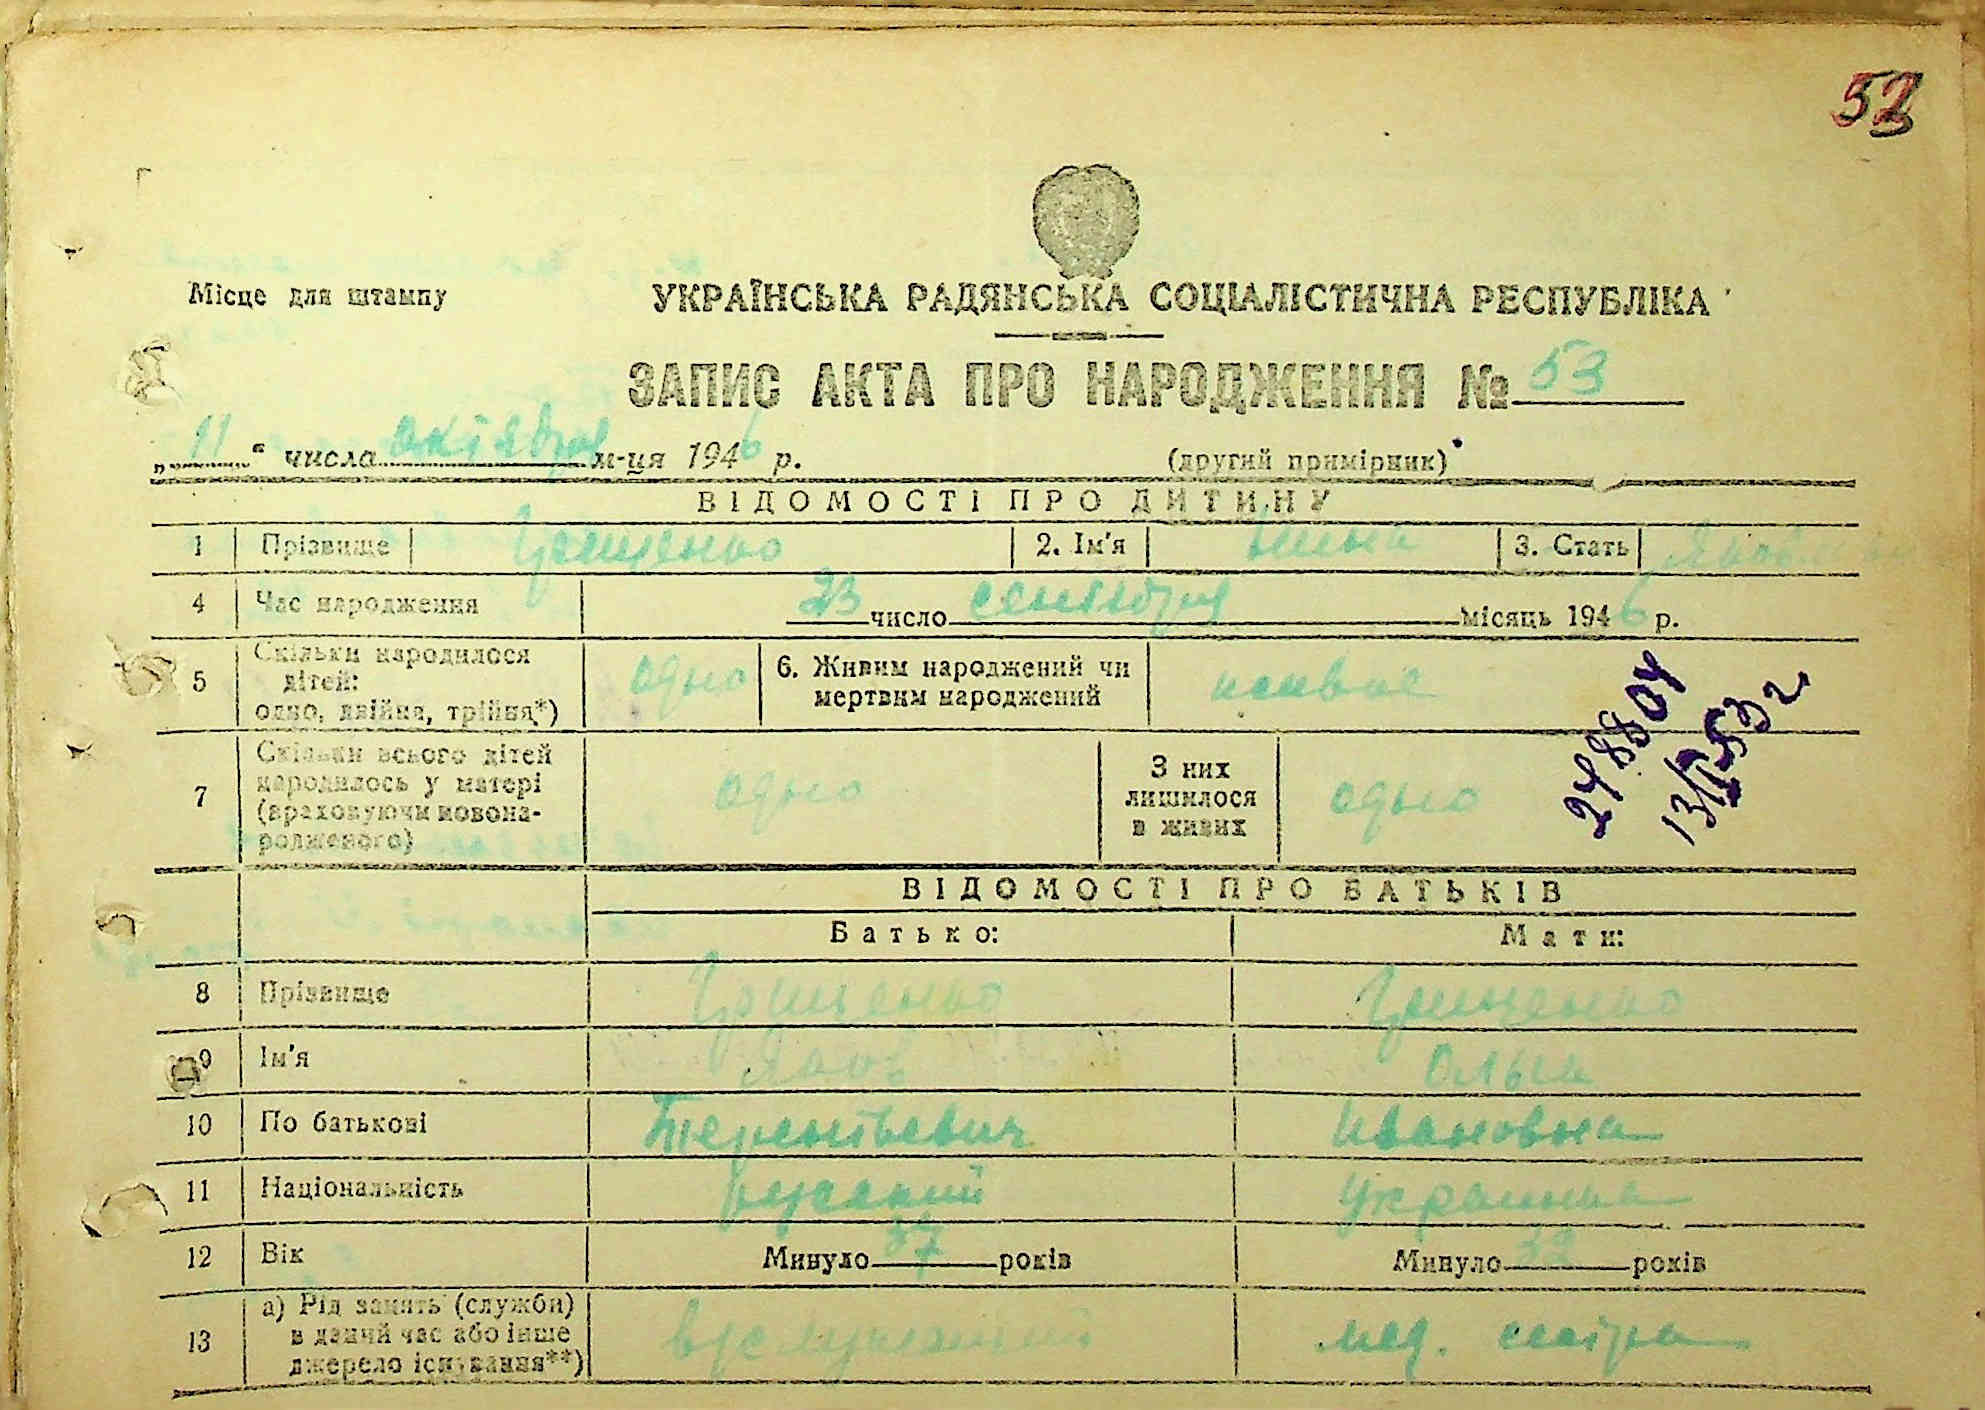 53
Місце для штампу
УКРАЇНСЬКА РАДЯНСЬКА СОЦІАЛІСТИЧНА РЕСПУБЛІКА
ЗАПИС АКТА ПРО НАРОДЖЕННЯ № 53
„11“ числа октября м-ця 1946 р. (другий примірник)
ВІДОМОСТІ ПРО ДИТИНУ
1 Прізвище Грищенко 2. Ім'я Нина 3. Стать
4 Час народження 23 число сентября місяць 1946 р.
5 Скільки народилося дітей: одно, двійня, трійня*) одно 6. Живим народжений чи мертвим народжений живое
2748804
13/II 53 г
7 Скільки всього дітей народилось у матері (враховуючи новонародженого) одно З них лишилося в живих одно
ВІДОМОСТІ ПРО БАТЬКІВ
Батько: Мати:
8 Прізвище Грищенко Грищенко
9 Ім'я Яков Ольга
10 По батькові Терентьевич Ивановна
11 Національність русский украинка
12 Вік Минуло 37 років Минуло 32 років
13 а) Рід занять (служби) в даний час або інше джерело існування**) військовослужащий мед. сестра